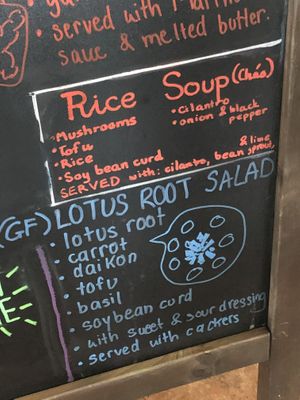 • served with
sauce & melted butter.
Rice Soup (Cháo)
• Mushrooms
• Tofu
• Rice
• Soy bean curd
• Cilantro
• onion & black
pepper
SERVED with: cilantro, bean sprout, & lime
(GF) LOTUS ROOT SALAD
• lotus root
• carrot
• daikon
• tofu
• basil
• soybean curd
• with sweet & sour dressing
• served with cackers